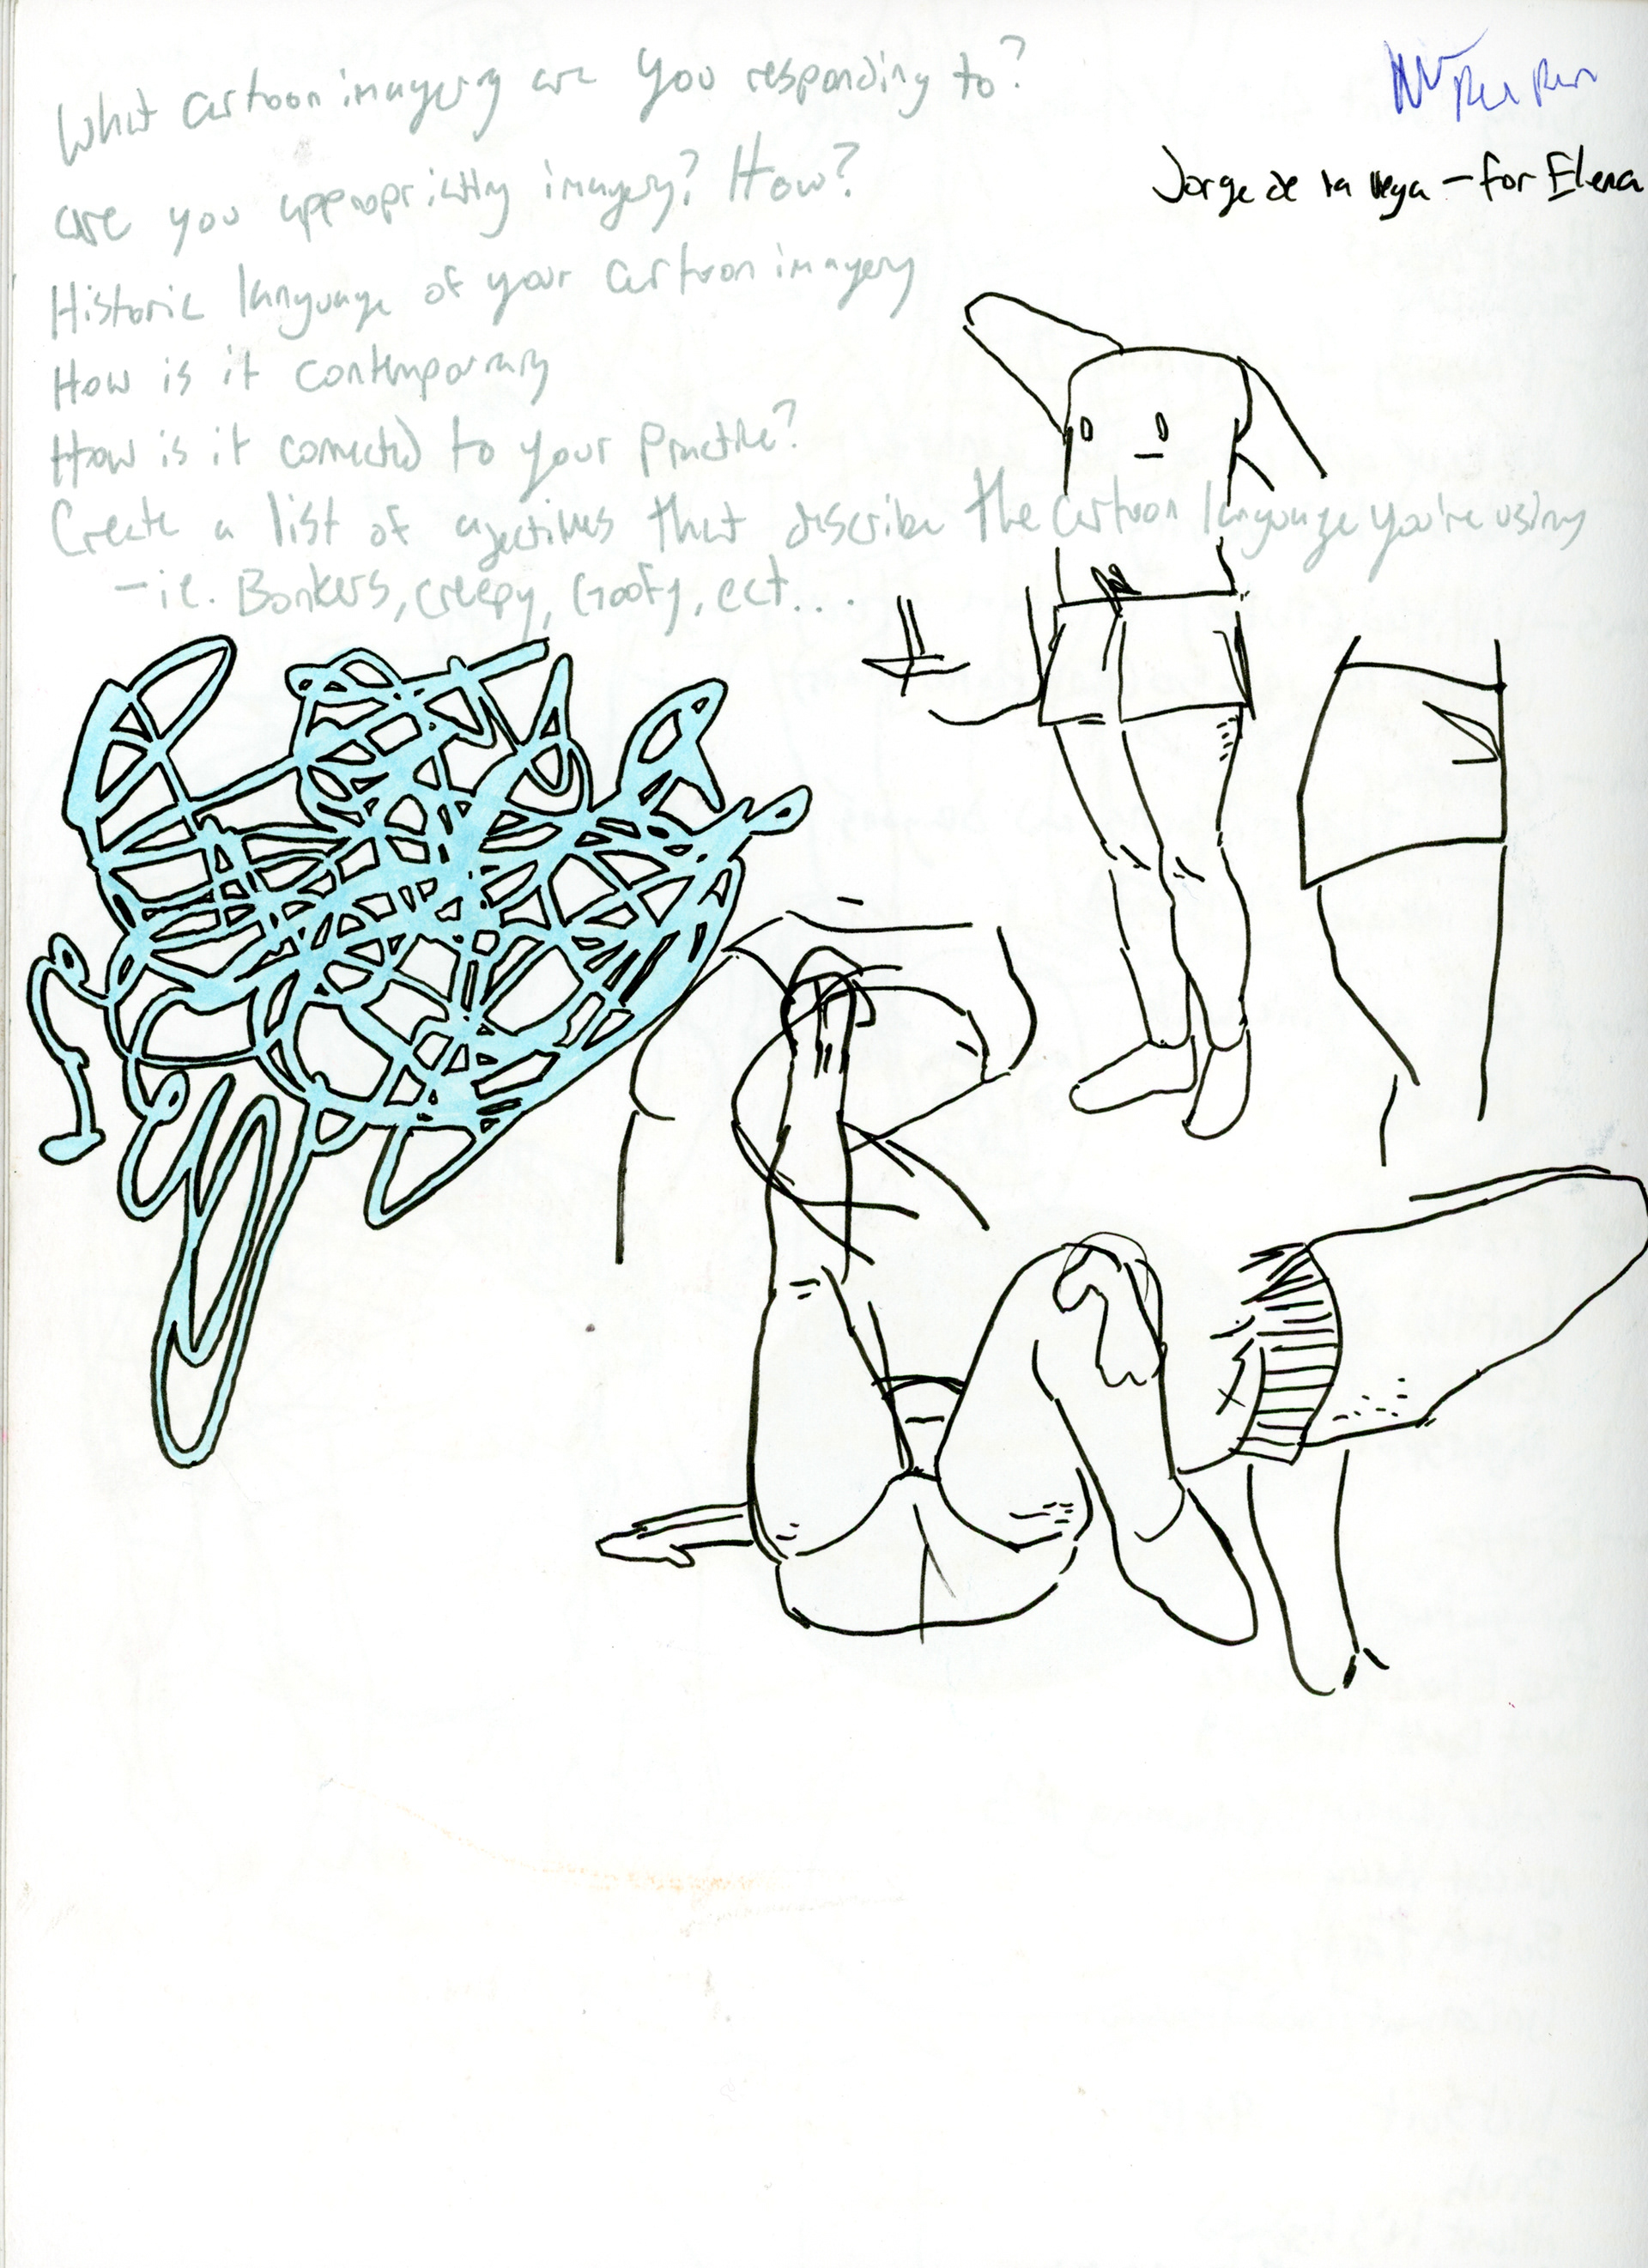 What cartoon imagery are you responding to?
are you appropriating imagery? How?
Historic language of your cartoon imagery
How is it contemporary
How is it connected to your practice?
Create a list of ajectives that describe the cartoon language you're using
- ie. Bonkers, creepy, Goofy, ect...
Jorge de la Vega - for Elena